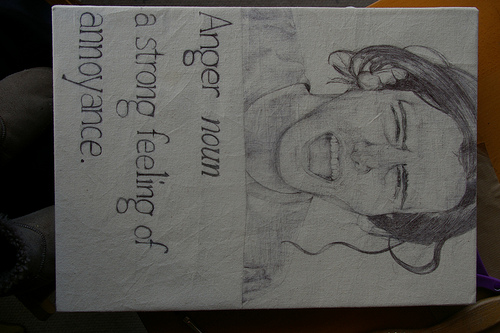 Anger noun
a strong feeling of
annoyance.